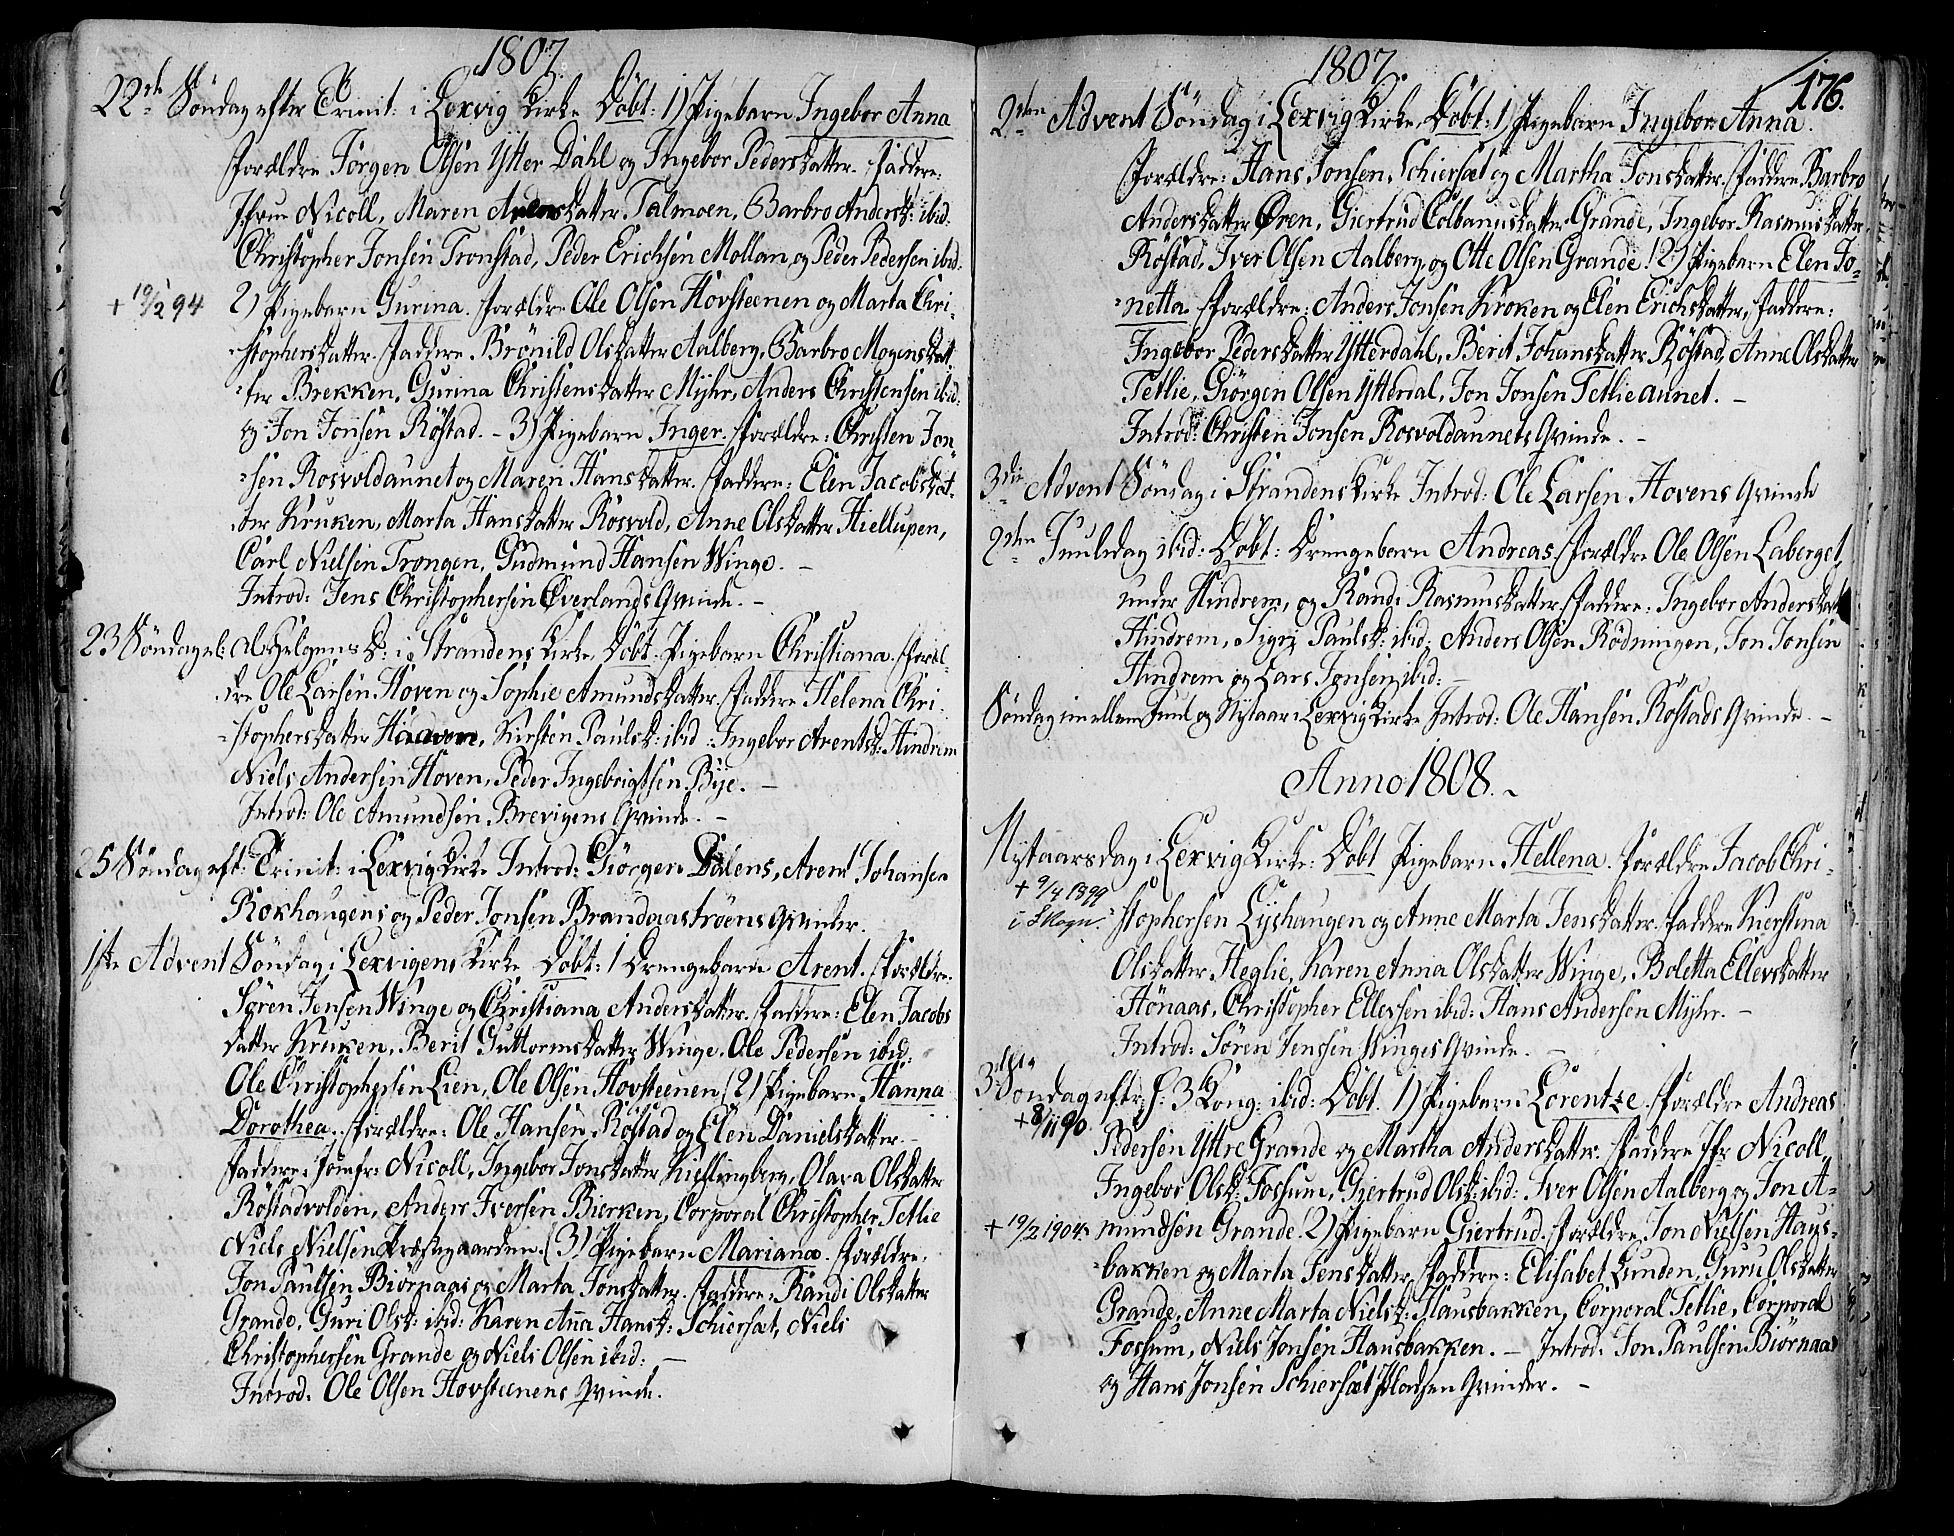 1807
22de Söndag efter Trinit: i Lexvig Kirke Döbt: 1) Pigebarn Ingebor Anna
Forældre Jörgen Olsen Ytter Dahl og Ingebor Pedersdatter. Faddere:
Jfrue Nicoll, Maren Arensdatter Talmoen, Barbro Andersd: ibid:
Christopher Jonsen Tronstad, Peder Erichsen Mollan, og Peder Pedersen ibid.
+ 19/2 94
2) Pigebarn Gurina. Forældre Ole Olsen Hovsteenen og Marta Chri-
stophersdatter. Faddere Brönild Olsdatter Aalberg, Barbro Mogensdat-
ter Brekken, Gurina Christensdatter Myhr, Anders Christensen ibid:
og Jon Jonsen Röstad. - 3) Pigebarn Inger. Forældre: Christen Jon-
sen Rosvoldaunet og Maren Hansdatter. Faddere: Elen Jacobsdat-
ter Kruken, Marta Hansdatter Rosvold, Anne Olsdatter Hiellupen,
Carl Nielsen Trongen, Gudmund Hansen Winge. -
Introd: Jens Christophersen Överlands Qvinde. -
23 Söndag el: Alhelgens D: i Strandens Kirke, Döbt. Pigebarn Christiana. Foræl-
dre Ole Larsen Hoven og Sophie Amundsdatter. Faddere Helena Chri-
stophersdatter Haaven, Kirsten Paulsd: ibid: Ingebor Arentsd: Hindrem
Niels Andersen Hoven, Peder Ingebrigtsen Bye. -
Introd: Ole Amundsen Brevigens Qvinde. -
25 Söndag eft: Trinit: i Lexvig Kirke Introd: Giörgen Dalens, Arent Johansen
Rokhaugens og Peder Jonsen Brandaaströens Qvinder.
1ste Advent Söndag i Lexvigens Kirke Döbt: 1 Drengebarn Arent. Forældre
Sören Jensen Winge og Christiana Andersdatter. Faddere: Elen Jacobs
datter Kruken, Berit Guttormsdatter Winge, Ole Pedersen ibid:
Ole Christophersen Lien, Ole Olsen Hovsteenen (2) Pigebarn Hanna
Dorothea. Forældre: Ole Hansen Röstad og Elen Danielsdatter. -
Faddere: Jomfr: Nicoll, Ingebor Jonsdatter Kiellingberg, Olava Olsdatter
Röstadvolden, Anders Iversen Bierken, Corporal Christopher Tetlie
Niels Nielsen Præstegaarden. (3) Pigebarn Mariana. Forældre,
Jon Paulsen Biörnaas og Marta Jonsdatter. Faddere: Randi Olsdatter
Grande, Guri Olsd: ibid: Karen Anna Hansd: Schiersæt, Niels
Christophersen Grande og Niels Olsen ibid: -
Introd: Ole Olsen Hovsteenens Qvinde.
1807
176.
2den Advent Söndag i Lexvig Kirke, Döbt: 1, Pigebarn Ingebor Anna.
Forældre: Hans Jonsen Schiersæt og Martha Jonsdatter. Faddere Barbro
Andersdatter Øren, Giertrud Colbanusdatter Grande, Ingebor Rasmusdatter
Röstad, Iver Olsen Aalberg, og Otte Olsen Grande. (2) Pigebarn Elen Jo-
netta. Forældre: Anders Jonsen Kroken og Elen Erichsdatter, Faddere:
Ingebor Pedersdatter Ytterdahl, Berit Johansdatter Röstad, Anne Olsdatter
Tetlie, Giörgen Olsen Ytterdal, Jon Jonsen Tetlieaunet. -
Introd: Christen Jonsen Rosvoldaunets Qvinde. -
3die Advent Söndag i Strandens Kirke Introd: Ole Larsen Hovens Qvinde
2den Juuledag ibid: Döbt: Drengebarn Andreas. Forældre Ole Olsen Laberget,
under Hindrem, og Randi Rasmusdatter. Faddere: Ingebor Andersdatt
Hindrem, Sigri Paulsd: ibid: Anders Olsen Rödningen, Jon Jonsen
Hindrem og Lars Jonsen ibid: -
Söndag imellem Juul og Nytaar i Lexvig Kirke Introd: Ole Hansen Röstads Qvinde. -
Anno 1808. -
Nytaarsdag i Lexvig Kirke: Döbt Pigebarn Hellena. Forældre Jacob Chri-
+ 9/4 1899
i Skogn.
stophersen Lyshaugen og Anne Marta Jensdatter. Faddere Kierstina
Olsdatter Heglie, Karen Anna Olsdatter Winge, Boletta Ellevsdatter
Hönaas, Christopher Ellevsen ibid: Hans Andersen Myhr. -
Introd: Sören Jensen Winges Qvinde. -
3die Söndag eftr: H: 3 Kong: ibid: Döbt. 1) Pigebarn Lorentze. Forældre Andreas
+ 8/11 90.
Pedersen Yttre Grande og Martha Andersdatter. Faddere Jfr Nicoll,
Ingebor Olsd: Fossum, Giertrud Olsd: ibid: Iver Olsen Aalberg og Jon A-
+ 19/2 1904.
mundsen Grande. (2) Pigebarn Giertrud. Forældre Jon Nielsen Haus-
bakken og Marta Jensdatter, Faddere: Elisabet Lunden, Guru Olsdatter
Grande, Anne Marta Nielsd: Hausbakken, Corporal Tetlie, Corporal
Fossum, Niels Jonsen Hausbakken. - Introd: Jon Paulsen Biörnaas
og Hans Jonsen Schiersæt Pladsen Qvinder. -